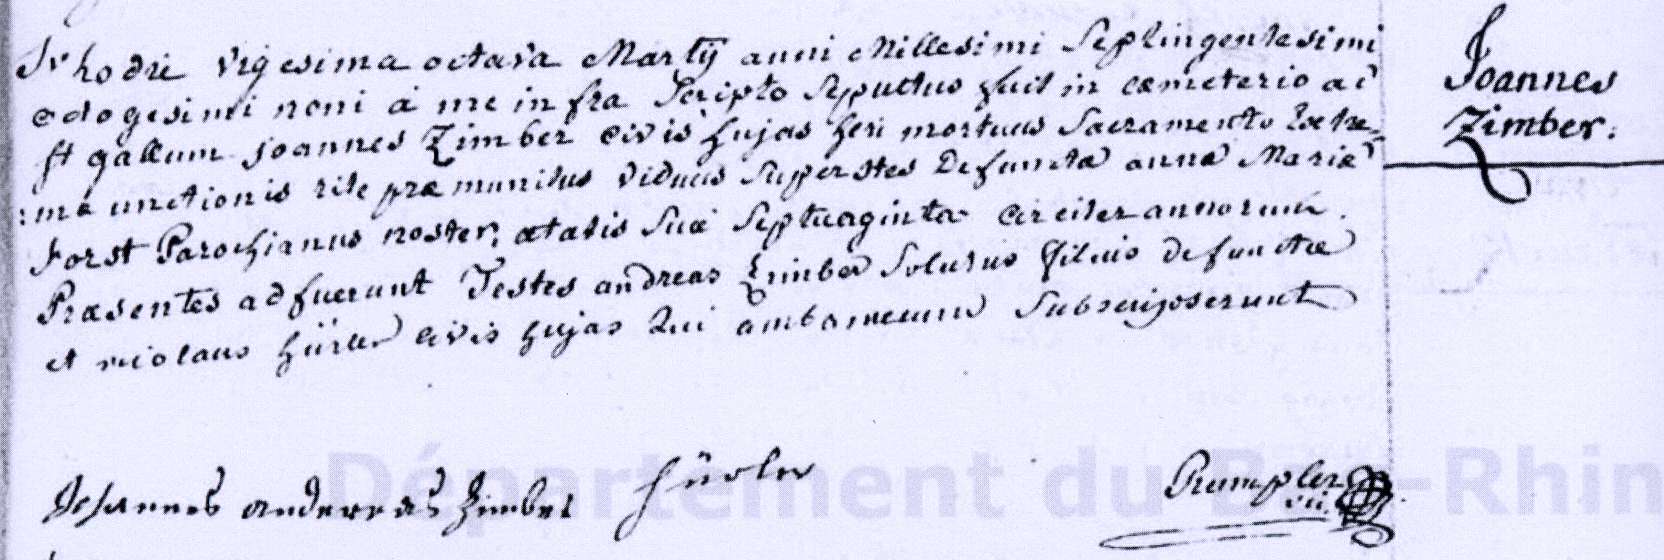 hodie vigesima octava Martij anni Millesimi Septingentesimi
octogesimi noni a me infra Scripto Sepultus fuit in cæmeterio ad
St gallum joannes Zimber civis hujas heri mortuus Sacramento Extre-
:mæ unctionis rite præmunitus viduus Superstes Defunctæ annæ Mariæ
Forst Parochianus noster, ætatis Suæ Septuaginta circiter annorum.
Præsentes adfuerunt Testes andreas Zimber Solutus filius defunctæ
et nicolaus hürler civis hujas qui ambo mecum Subscripserunt
Joannes
Zimber.
Johannes andereas Zimber
hürler
Rumpler
Département du Bas-Rhin